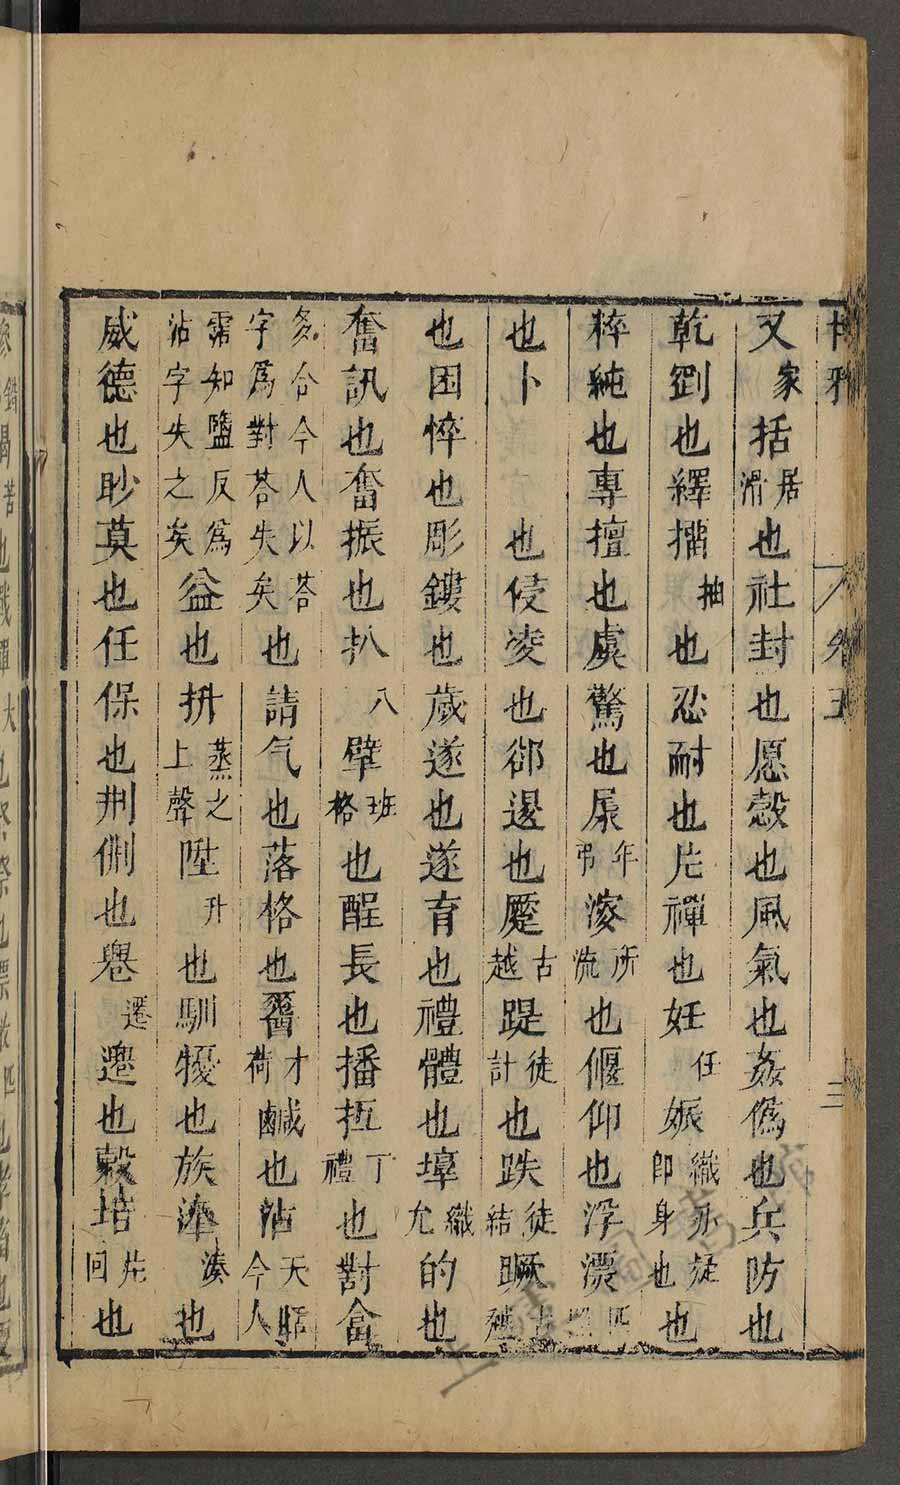 博雅 卷五 三
叉家括居滑也社封也愿愨也風氣也姦僞也兵防也
乾劉也繹擂抽也忍耐也片禪也妊任娠織刃即身也也
粹純也專擅也虞驚也㞙年弔溲所流也偃仰也浮漂匹
也卜也侵凌也郤邊也蹷古越踶徒計也跌徒結蹶古越
也困悴也彫鏤也歲遂也遂育也禮體也埻織允的也
奮訊也奮振也扒八擘班格也酲長也播抵丁禮也對畣
多合今人以荅字爲對荅失矣也請气也落格也䶒才荷鹹也沾天䀡今人
霑知鹽反爲沾字失之矣益也拼蒸之上聲陞升也馴擾也族湊湊也
威德也眇莫也任保也刑侀也舉遷遷也榖培片回也